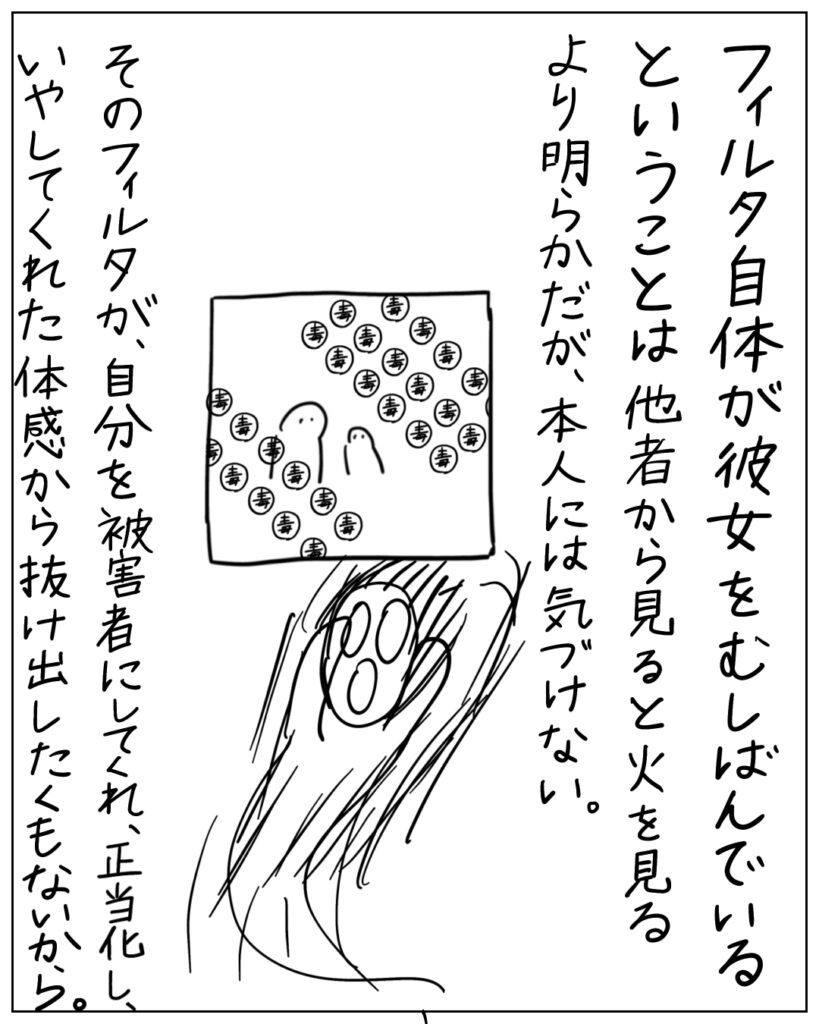 フィルタ自体が彼女をむしばんでいる
ということは他者から見ると火を見る
より明らかだが、本人には気づけない。
毒 毒 毒 毒 毒 毒 毒 毒 毒 毒 毒 毒 毒 毒 毒 毒
毒 毒 毒 毒 毒 毒 毒 毒 毒 毒 毒 毒
そのフィルタが、自分を被害者にしてくれ、正当化し、
いやしてくれた体感から抜け出したくもないから。